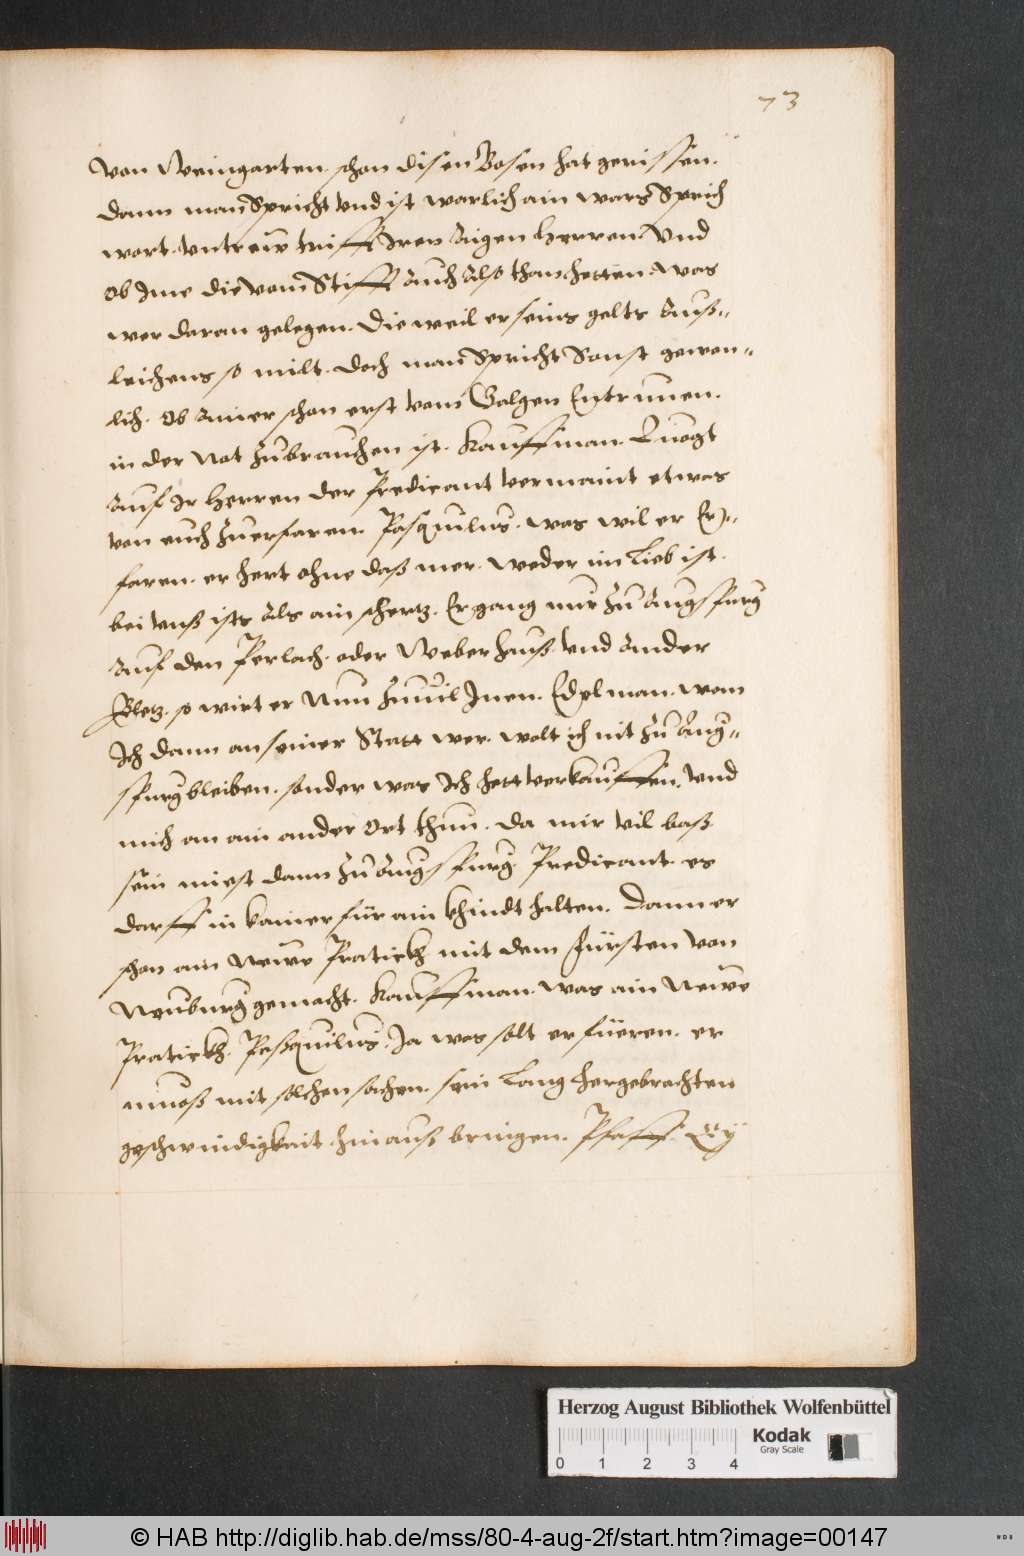 73
von Weingarten. schon disen Bosen hat gerissen.
dann man Spricht vnd ist warlich ain wars Sprich
wort. vntrew trifft Iren aigen Herren. vnd
ob Ime die vom Stifft auch also thon hetten. was
wer daran gelegen. dieweil er seins gelts auß„
leichens so milt. doch man Spricht Sonst gewon„
lich. ob ainer schon erst vom Galgen Entrunen.
in der Not zubrauchen ist. Kauffman. Luogt
auf Ir Herren der Predicant vermaint etwas
von euch zuerfaren. Pasquilus. was wil er Er„
faren. er hert ohne daß mer. weder im Lieb ist.
bei vnß ists als ain schertz. Er gang nur zu Augspurg
auf den Perlach. oder Weberhauß vnd ander
Pletz. so wirt er Nun zuuil Inen. Edelman. wan
Ich dann an seiner Statt wer. wolt ich nit zu Aug„
spurg bleiben. sonder was Ich hett verkauffen. vnd
mich an ain ander Ort thun. da mir vil baß
sein miest dann zu Augspurg. Predicant. es
darff in kainer für ain khindt halten. Dann er
schon ain Newe Pratickh mit dem Fürsten von
Neuburg gemacht. Kauffman. was ain Newe
Pratickh. Paßquilus. Ja was solt er füeren. er
muoß mit solchen sachen. sein Lang hergebrachten
geschwindigkait hinauß bringen. Pfaff. Ey
Herzog August Bibliothek Wolfenbüttel
Kodak
Gray Scale
0 1 2 3 4
© HAB http://diglib.hab.de/mss/80-4-aug-2f/start.htm?image=00147